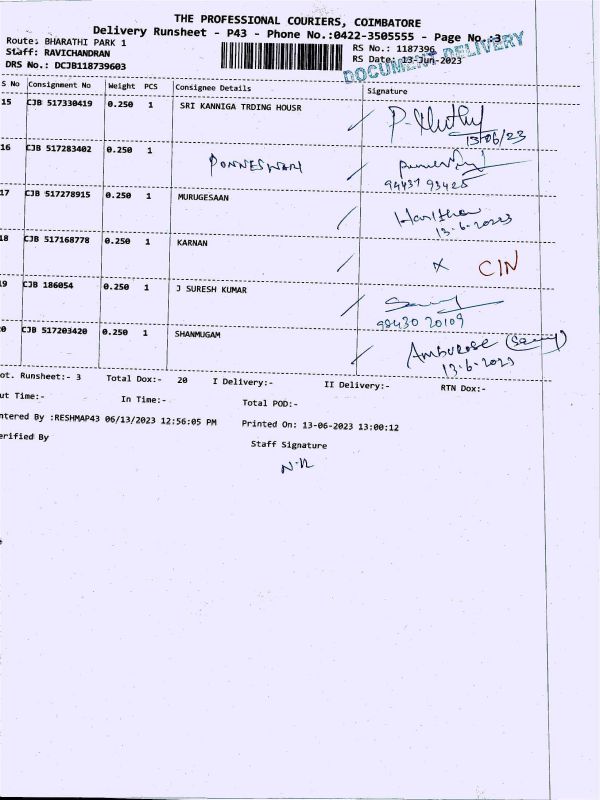 THE PROFESSIONAL COURIERS, COIMBATORE
Delivery Runsheet - P43 - Phone No.:0422-3505555 - Page No.:3
Route: BHARATHI PARK 1
RS No.: 1187396
Staff: RAVICHANDRAN
RS Date: 13-Jun-2023
DOCUMENT DELIVERY
DRS No.: DCJB118739603
S No Consignment No Weight PCS Consignee Details Signature
15 CJB 517330419 0.250 1 SRI KANNIGA TRDING HOUSR
13/06/23
16 CJB 517283402 0.250 1
PONNESWARI
94437 93425
17 CJB 517278915 0.250 1 MURUGESAAN
13-6-2023
18 CJB 517168778 0.250 1 KARNAN
x CIN
19 CJB 186054 0.250 1 J SURESH KUMAR
98430 20109
20 CJB 517203420 0.250 1 SHANMUGAM
Amburose
13-6-2023
ot. Runsheet:- 3 Total Dox:- 20 I Delivery:- II Delivery:- RTN Dox:-
ut Time:- In Time:- Total POD:-
ntered By :RESHMAP43 06/13/2023 12:56:05 PM Printed On: 13-06-2023 13:00:12
erified By
Staff Signature